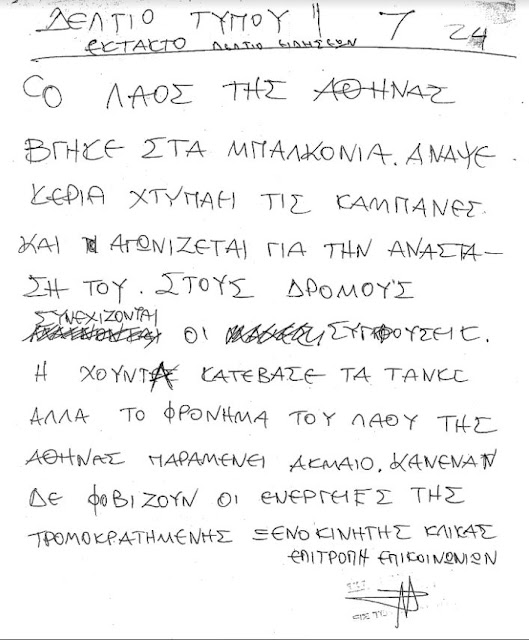 ΔΕΛΤΙΟ ΤΥΠΟΥ 7 24
ΕΚΤΑΚΤΟ ΔΕΛΤΙΟ ΕΙΔΗΣΕΩΝ
Ο ΛΑΟΣ ΤΗΣ ΑΘΗΝΑΣ
ΒΓΗΚΕ ΣΤΑ ΜΠΑΛΚΟΝΙΑ. ΑΝΑΨΕ
ΚΕΡΙΑ ΧΤΥΠΑΕΙ ΤΙΣ ΚΑΜΠΑΝΕΣ
ΚΑΙ ΑΓΩΝΙΖΕΤΑΙ ΓΙΑ ΤΗΝ ΑΝΑΣΤΑ–
ΣΗ ΤΟΥ. ΣΤΟΥΣ ΔΡΟΜΟΥΣ
ΣΥΝΕΧΙΖΟΝΤΑΙ
ΟΙ ΣΥΓΚΡΟΥΣΕΙΣ.
Η ΧΟΥΝΤΑ ΚΑΤΕΒΑΣΕ ΤΑ ΤΑΝΚΣ
ΑΛΛΑ ΤΟ ΦΡΟΝΗΜΑ ΤΟΥ ΛΑΟΥ ΤΗΣ
ΑΘΗΝΑΣ ΠΑΡΑΜΕΝΕΙ ΑΚΜΑΙΟ. ΚΑΝΕΝΑΝ
ΔΕ ΦΟΒΙΖΟΥΝ ΟΙ ΕΝΕΡΓΕΙΕΣ ΤΗΣ
ΤΡΟΜΟΚΡΑΤΗΜΕΝΗΣ ΞΕΝΟΚΙΝΗΤΗΣ ΚΛΙΚΑΣ
ΕΠΙΤΡΟΠΗ ΕΠΙΚΟΙΝΩΝΙΩΝ